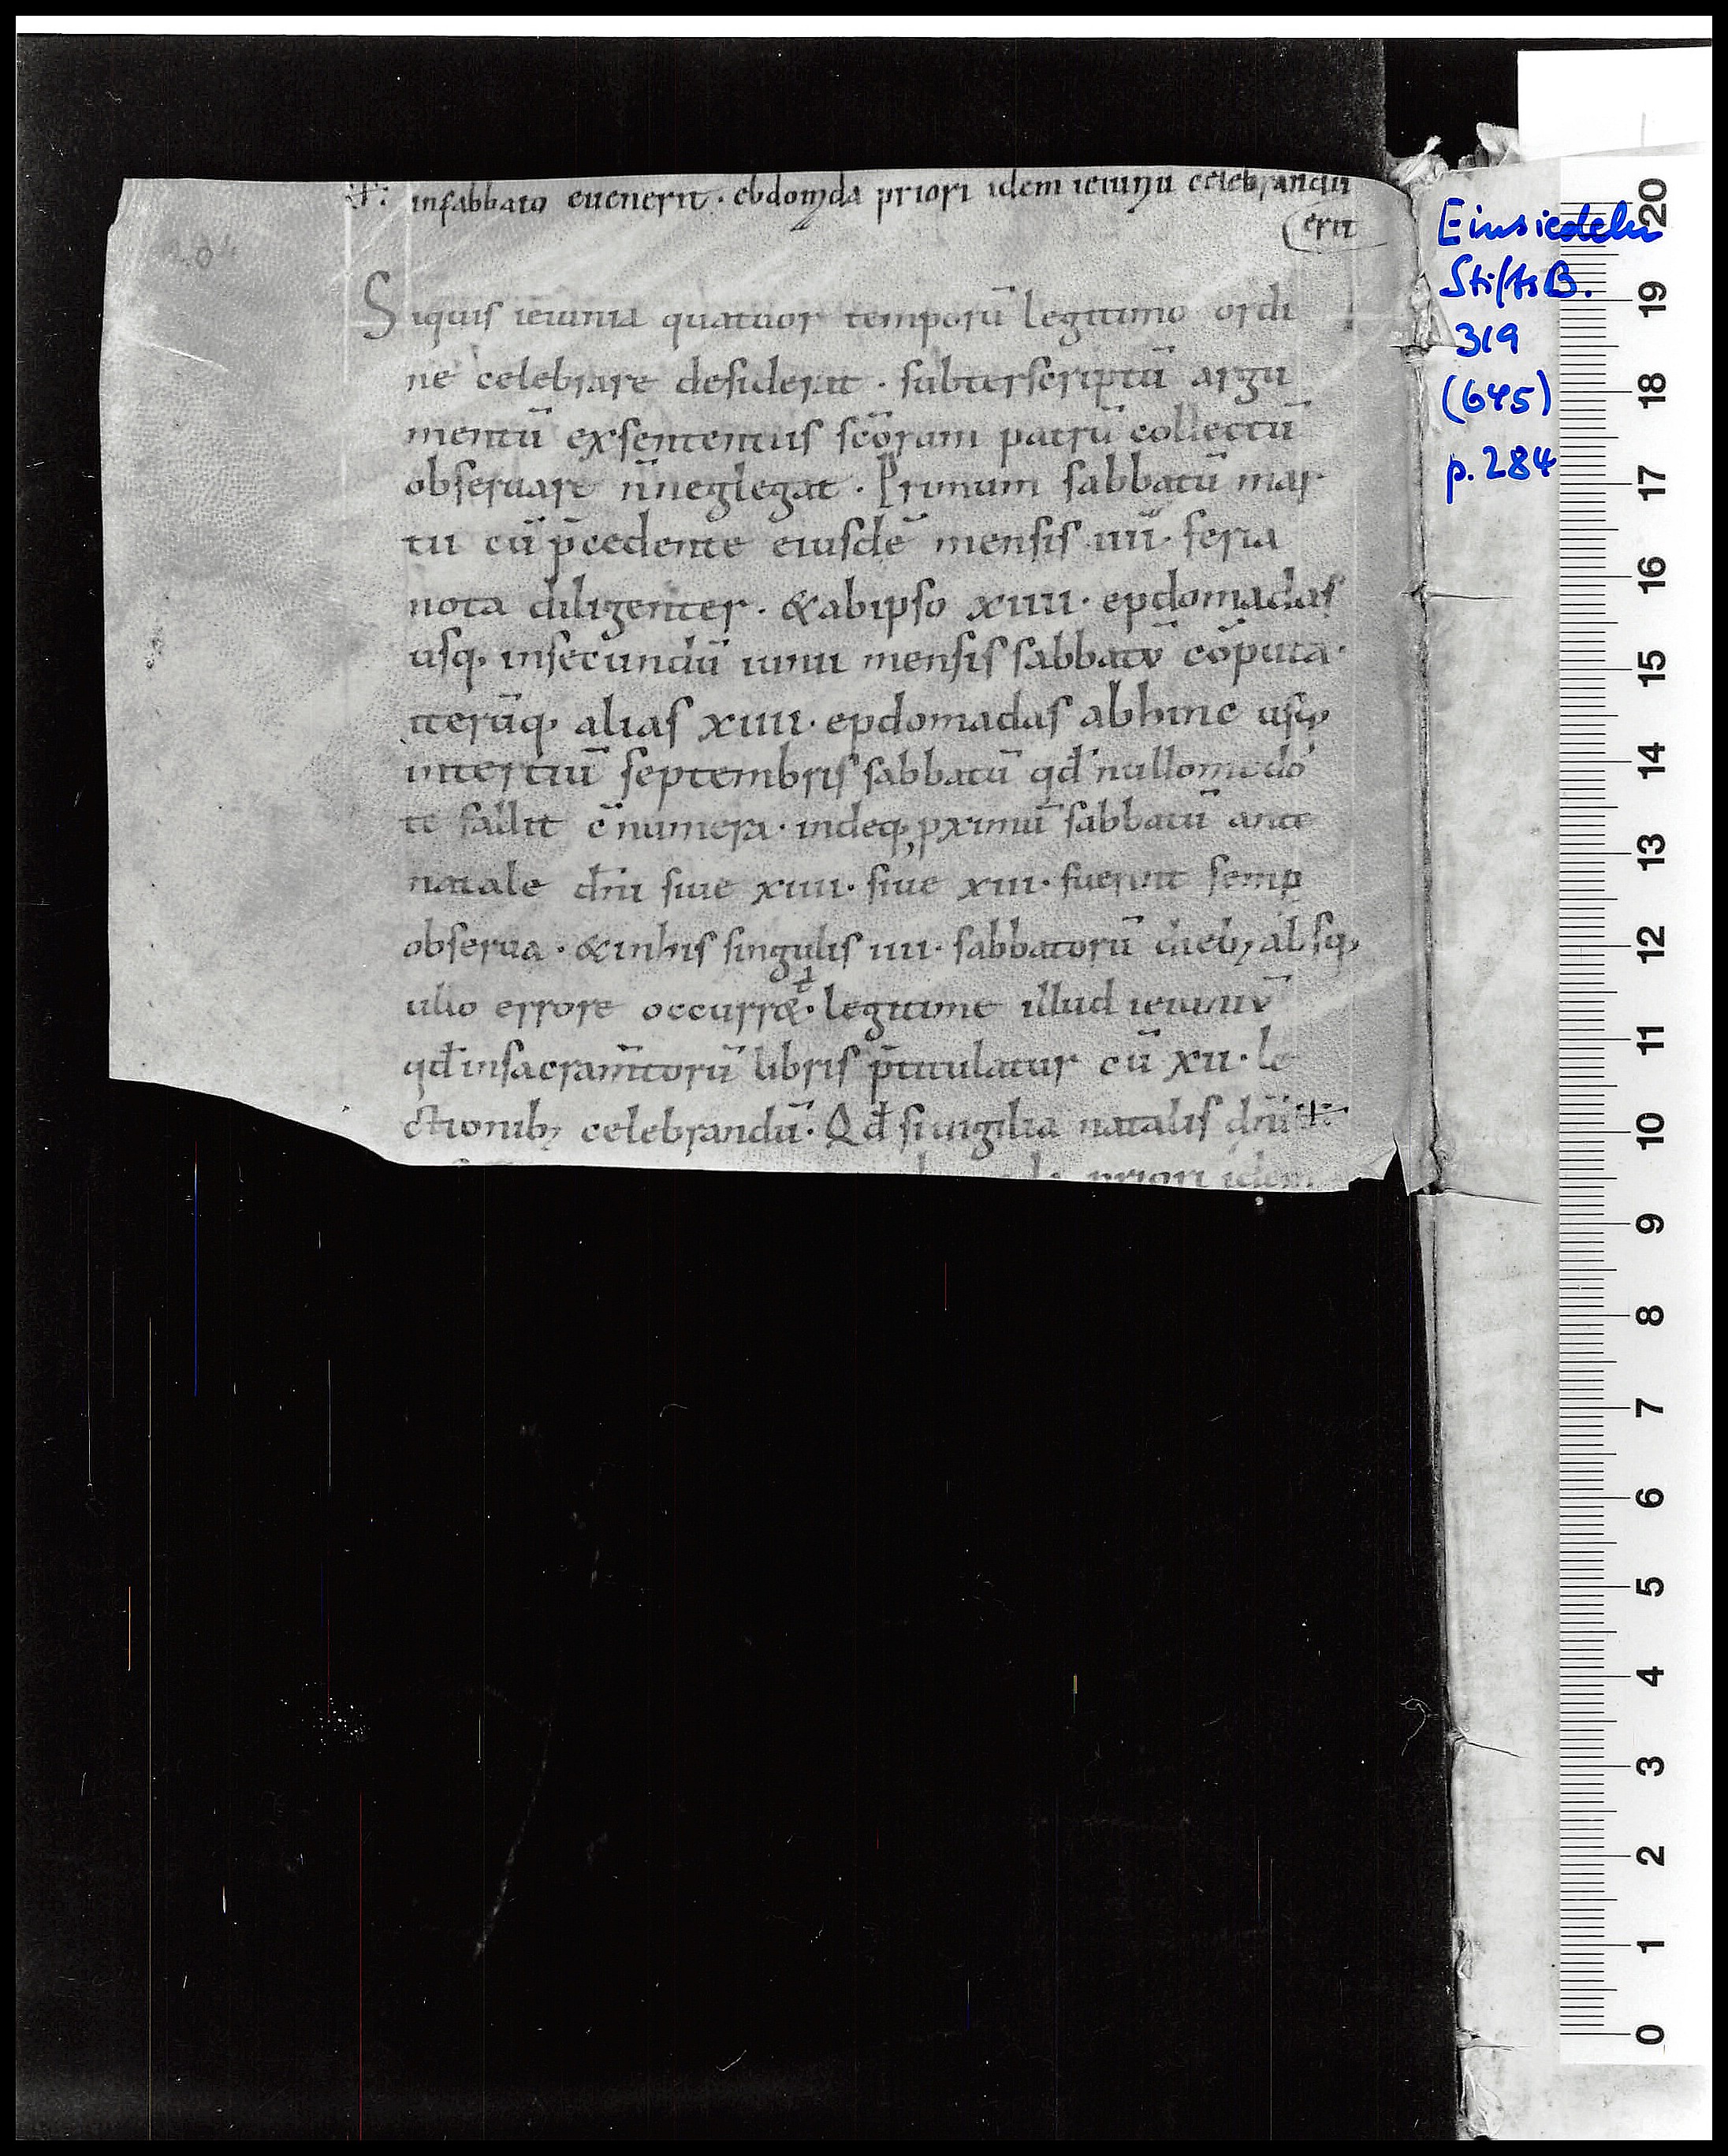 ⁘ insabbato euenerit · ebdomada priori idem ieiuniũ celebrandũ
erit
Siquis ieiunia quatuor temporũ legitimo ordi
ne celebrare desiderat · subterscriptũ argu
mentũ exsententiis scõrum patrũ collectũ
obseruare ñneglegat · Primum sabbatũ mar
tii cũ p̄cedente eiusdẽ mensis iiii · feria
nota diligenter · &abipso xiiii · epdomadas
usq; insecundũ iunii mensis sabbatũ cõputa ·
iterũq; alias xiiii · epdomadas abhinc usq;
intertiũ septembris sabbatũ qđ nullomodo
te fallit c̄numera · indeq; pximũ sabbatũ ante
natale dñi siue xiiii · siue xiii · fuerint semꝑ
obserua · &inhis singulis iiii · sabbatorũ dieb; absq;
ullo errore occurr& · legitime illud ieiuniũ
qđ insacram̃torũ libris p̄titulatur cũ xii · le
ctionib; celebrandũ · Qđ siuigilia natalis dñi ⁘
priori idem
Einsiedeln
StiftsB.
319
(645)
p. 284
20
19
18
17
16
15
14
13
12
11
10
9
8
7
6
5
4
3
2
1
0